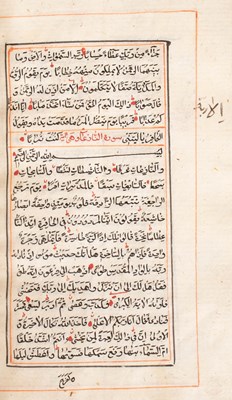 جزاء من ربك عطاء حسابا رب السموات والارض وما
بينهما الرحمن لا يملكون منه خطابا يوم يقوم الروح
والملئكة صفا لا يتكلمون الا من اذن له الرحمن و
قال صوابا ذلك اليوم الحق فمن شاء اتخذ الى ربه مابا انا
انذرناكم عذابا قريبا يوم ينظر المرء ما قدمت يداه ويقول
الكافر يا ليتني سورة النازعات كنت ترابا
بسم الله الرحمن الرحيم
والنازعات غرقا والناشطات نشطا والسابحات
سبحا فالسابقات سبقا فالمدبرات امرا يوم ترجف
الراجفة تتبعها الرادفة قلوب يومئذ واجفة ابصارها
خاشعة يقولون ائنا لمردودون في الحافرة ائذا كنا
عظاما نخرة قالوا تلك اذا كرة خاسرة فانما هي زجرة
واحدة فاذا هم بالساهرة هل اتيك حديث موسى اذ ناديه
ربه بالواد المقدس طوى اذهب الى فرعون انه طغى
فقل هل لك الى ان تزكى واهديك الى ربك فتخشى
فاريه الاية الكبرى فكذب وعصى ثم ادبر يسعى فحشر
فنادى فقال انا ربكم الاعلى فاخذه الله نكال الاخرة و
الاولى ان في ذلك لعبرة لمن يخشى ءانتم اشد خلقا
ام السماء بنيها رفع سمكها فسويها واغطش ليلها
واخرج